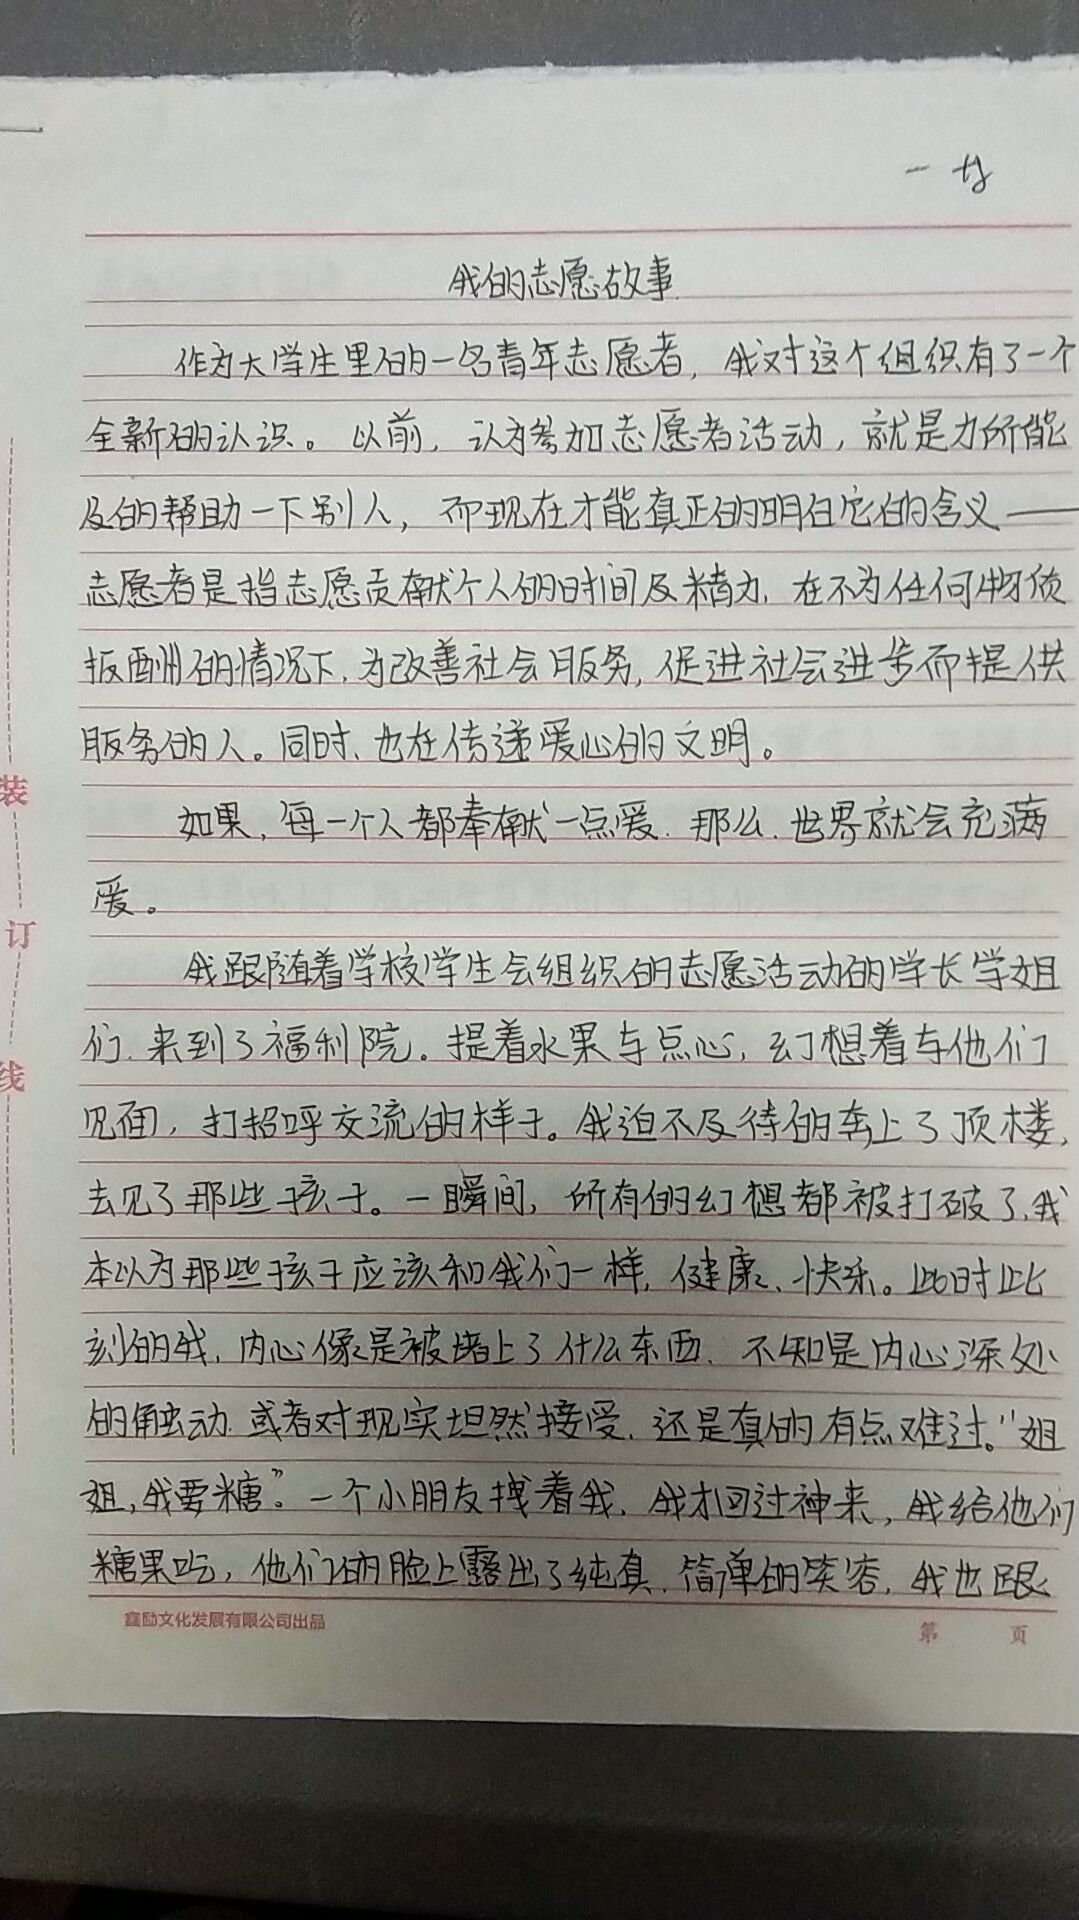 我的志愿故事
作为大学生里的一名青年志愿者，我对这个组织有了一个
全新的认识。以前，认为参加志愿者活动，就是力所能
及的帮助一下别人，而现在才能真正的明白它的含义——
志愿者是指志愿贡献个人的时间及精力，在不为任何物质
报酬的情况下，为改善社会服务，促进社会进步而提供
服务的人。同时，也在传递爱心的文明。
如果，每一个人都奉献一点爱，那么，世界就会充满
爱。
我跟随着学校学生会组织的志愿活动的学长学姐
们，来到了福利院。提着水果与点心，幻想着与他们
见面，打招呼交流的样子。我迫不及待的奔上了顶楼，
去见了那些孩子。一瞬间，所有的幻想都被打破了，我
本以为那些孩子应该和我们一样，健康、快乐。此时此
刻的我，内心像是被堵上了什么东西，不知是内心深处
的触动，或者对现实坦然接受，还是真的有点难过。“姐
姐，我要糖”。一个小朋友拽着我，我才回过神来，我给他们
糖果吃，他们的脸上露出了纯真、简单的笑容，我也跟
装
订
线
鑫励文化发展有限公司出品
第 页